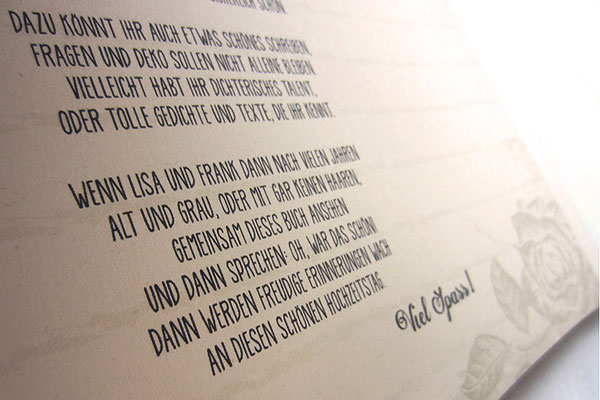 SCHÖN.
DAZU KÖNNT IHR AUCH ETWAS SCHÖNES SCHREIBEN.
FRAGEN UND DEKO SOLLEN NICHT ALLEINE BLEIBEN.
VIELLEICHT HABT IHR DICHTERISCHES TALENT,
ODER TOLLE GEDICHTE UND TEXTE, DIE IHR KENNT.
WENN LISA UND FRANK DANN NACH VIELEN JAHREN
ALT UND GRAU, ODER MIT GAR KEINEN HAAREN,
GEMEINSAM DIESES BUCH ANSEHEN
UND DANN SPRECHEN: OH, WAR DAS SCHÖN!
DANN WERDEN FREUDIGE ERINNERUNGEN WACH
AN DIESEN SCHÖNEN HOCHZEITSTAG.
Viel Spass!